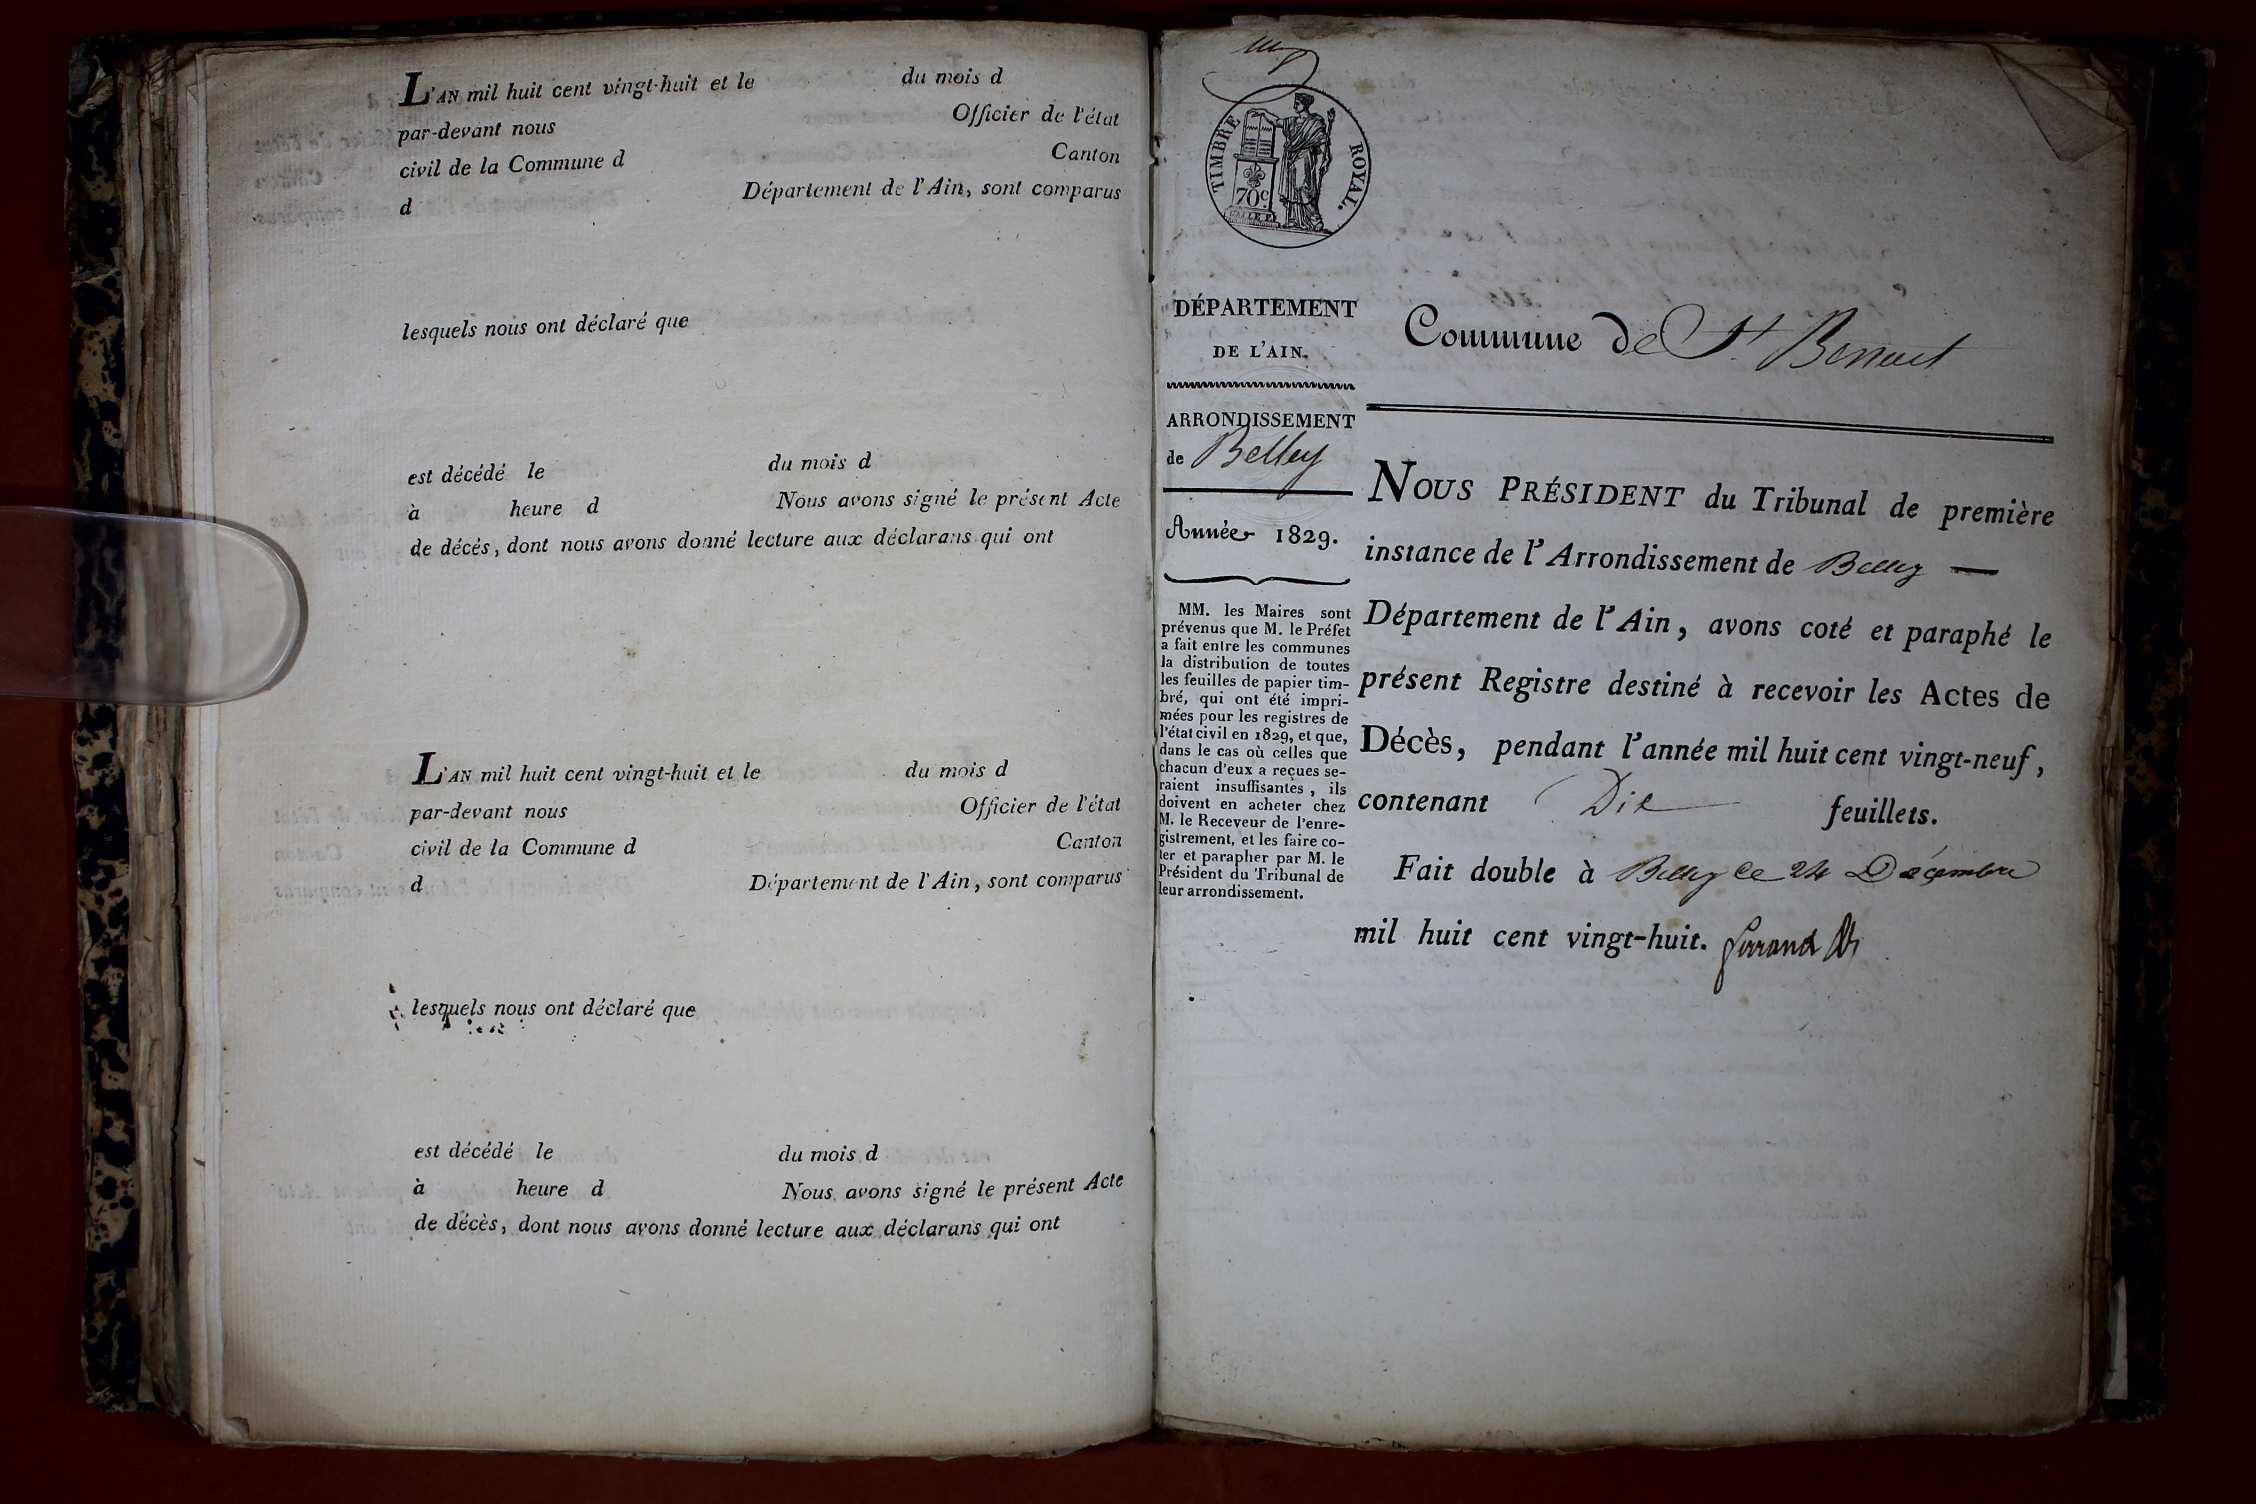 L'AN mil huit cent vingt-huit et le du mois d
par-devant nous Officier de l'état
civil de la Commune d Canton
d Département de l'Ain, sont comparus
lesquels nous ont déclaré que
est décédé le du mois d
à heure d Nous avons signé le présent Acte
de décès, dont nous avons donné lecture aux déclarans qui ont
L'AN mil huit cent vingt-huit et le du mois d
par-devant nous Officier de l'état
civil de la Commune d Canton
d Département de l'Ain, sont comparus
lesquels nous ont déclaré que
est décédé le du mois d
à heure d Nous avons signé le présent Acte
de décès, dont nous avons donné lecture aux déclarans qui ont
TIMBRE ROYAL.
70 c.
DÉPARTEMENT
DE L'AIN.
ARRONDISSEMENT
de Belley
Année 1829.
MM. les Maires sont
prévenus que M. le Préfet
a fait entre les communes
la distribution de toutes
les feuilles de papier tim-
bré, qui ont été impri-
mées pour les registres de
l'état civil en 1829, et que,
dans le cas où celles que
chacun d'eux a reçues se-
raient insuffisantes, ils
doivent en acheter chez
M. le Receveur de l'enre-
gistrement, et les faire co-
ter et parapher par M. le
Président du Tribunal de
leur arrondissement.
Commune de St Benoit
NOUS PRÉSIDENT du Tribunal de première
instance de l'Arrondissement de Belley
Département de l'Ain, avons coté et paraphé le
présent Registre destiné à recevoir les Actes de
Décès, pendant l'année mil huit cent vingt-neuf,
contenant Dix feuillets.
Fait double à Belley ce 24 Décembre
mil huit cent vingt-huit.